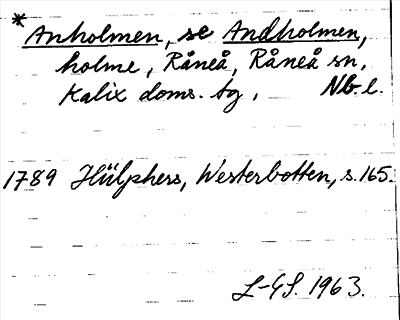 * Anholmen, se Andholmen,
holme, Råneå, Råneå sn,
Kalix doms. tg, Nb. l.
1789 Hülphers, Westerbotten, s. 165.
L-GS. 1963.